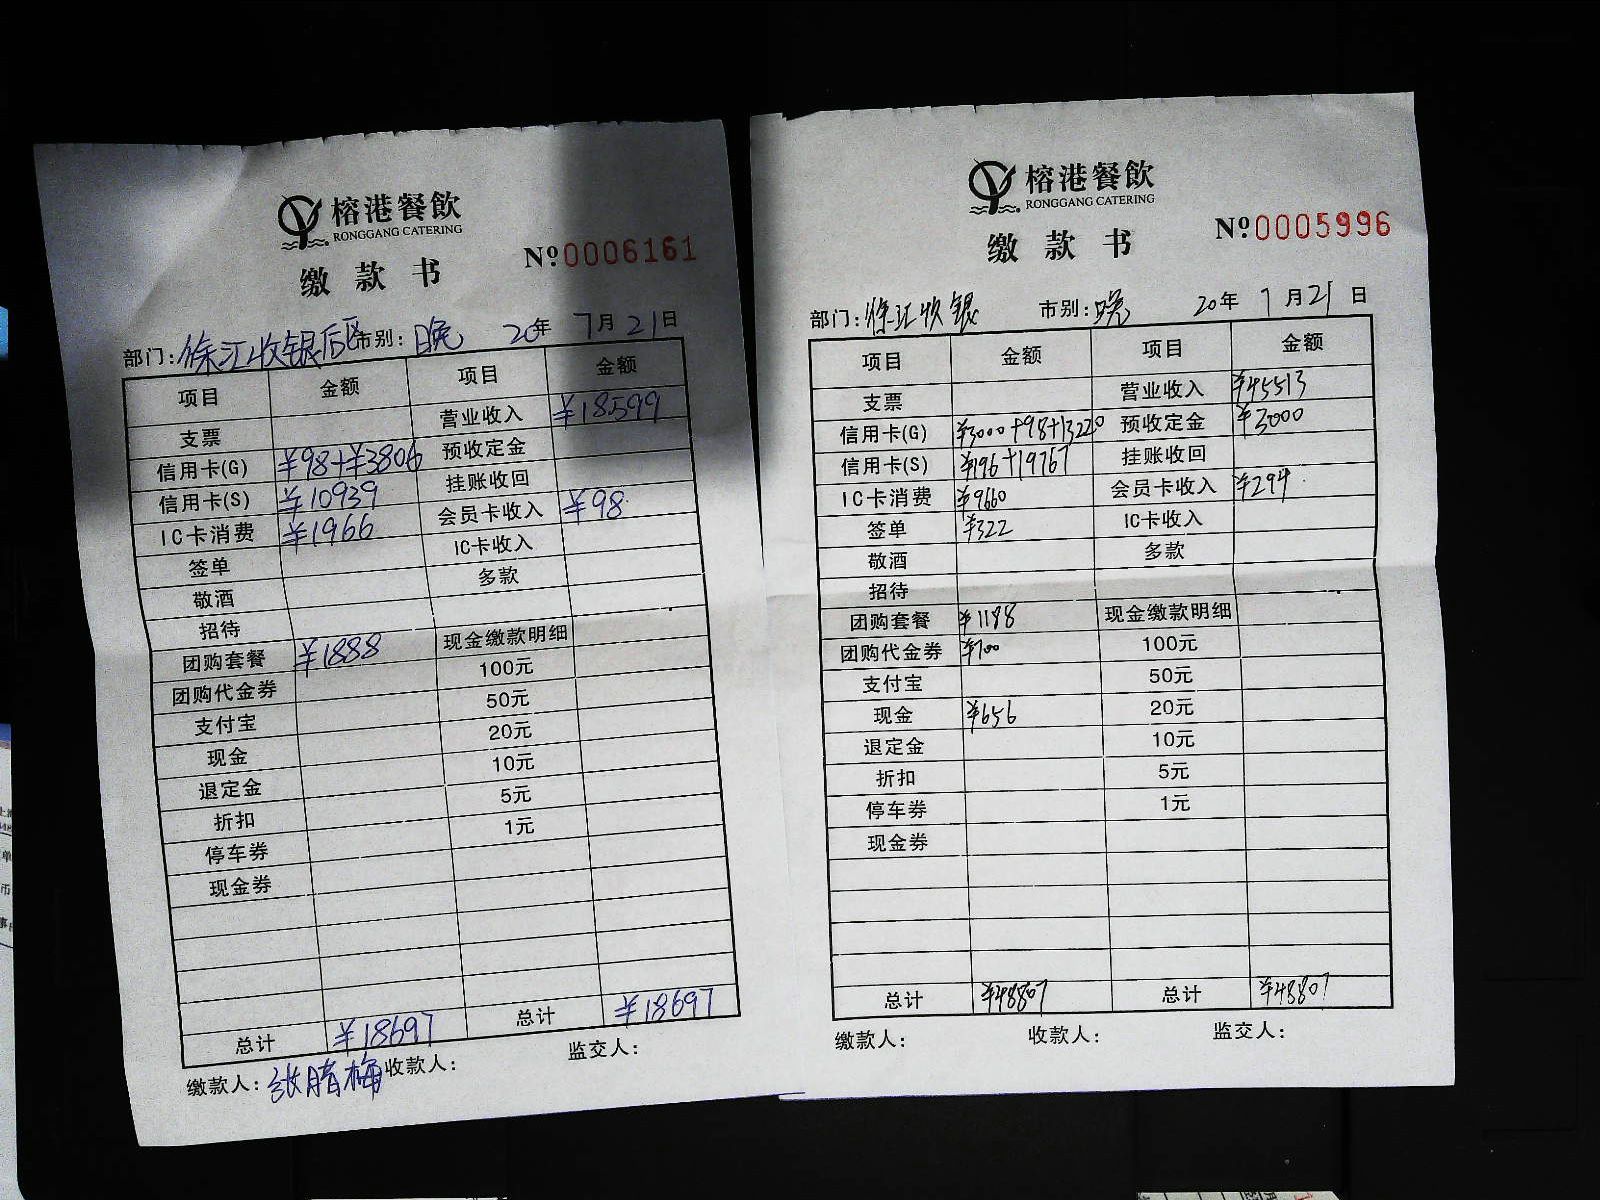 榕港餐飲
RONGGANG CATERING
缴款书
№0006161
部门:徐汇收银后区 市别:晚 20年7月21日
项目 金额 项目 金额
支票 营业收入 ¥18599
信用卡(G) ¥98+¥3806 预收定金
信用卡(S) ¥10939 挂账收回
IC卡消费 ¥1966 会员卡收入 ¥98
签单 IC卡收入
敬酒 多款
招待
团购套餐 ¥1888 现金缴款明细
团购代金券 100元
支付宝 50元
现金 20元
退定金 10元
折扣 5元
停车券 1元
现金券
总计 ¥18697 总计 ¥18697
缴款人:张腊梅 收款人: 监交人:
榕港餐飲
RONGGANG CATERING
缴款书
№0005996
部门:徐汇收银 市别:晚 20年7月21日
项目 金额 项目 金额
支票 营业收入 ¥45513
信用卡(G) ¥3000+98+13220 预收定金 ¥3000
信用卡(S) ¥196+19767 挂账收回
IC卡消费 ¥9660 会员卡收入 ¥294
签单 ¥322 IC卡收入
敬酒 多款
招待
团购套餐 ¥1188 现金缴款明细
团购代金券 ¥700 100元
支付宝 50元
现金 ¥656 20元
退定金 10元
折扣 5元
停车券 1元
现金券
总计 ¥48807 总计 ¥48807
缴款人: 收款人: 监交人: